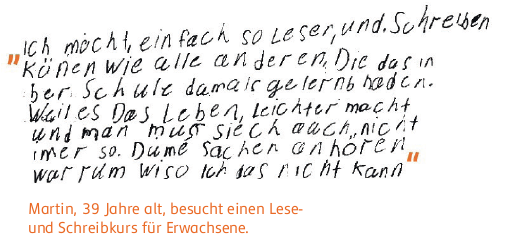 "Ich möcht, einfach so Leser, und. Schreiben
Könen wie alle anderen. Die das in
ber. Schule damals gelernb haden.
Weil es Das Leben, Leichter macht
und man muß siech auch, nicht
imer so. Dume Sachen anhören
warrum wiso Ich das nicht kann"
Martin, 39 Jahre alt, besucht einen Lese-
und Schreibkurs für Erwachsene.